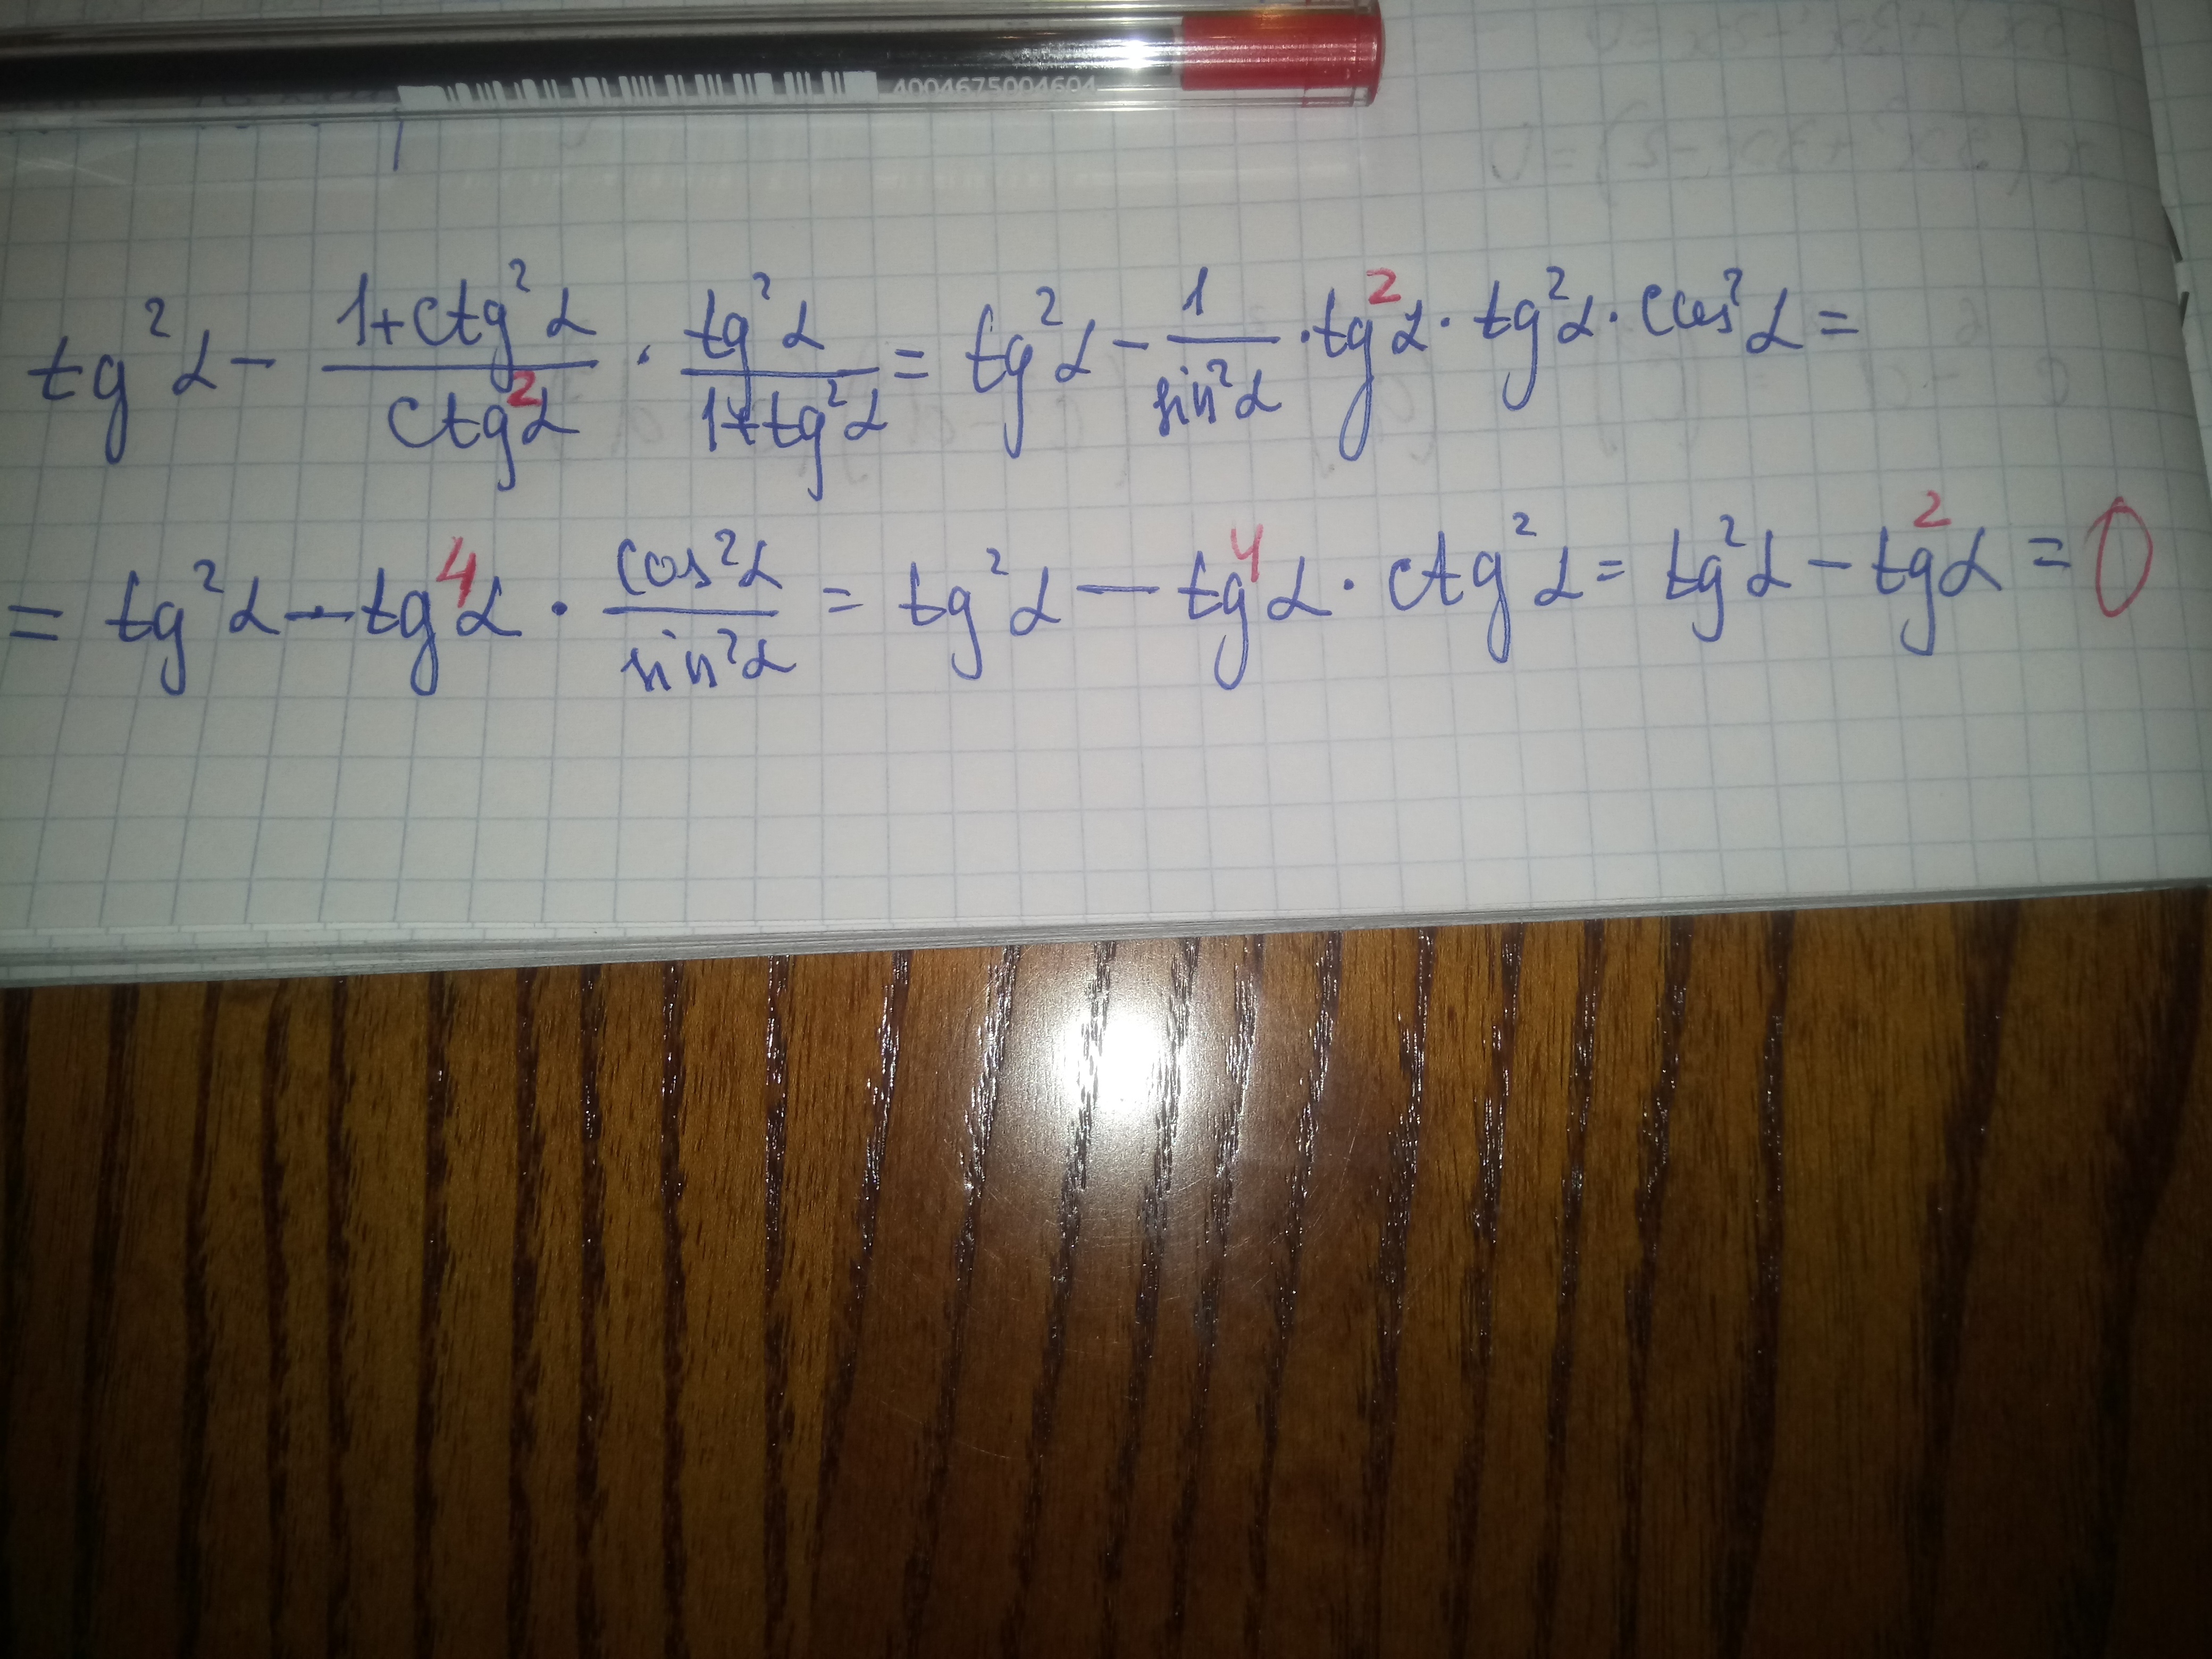 4004675004604
tg²α - (1+ctg²α)/(ctg²α) · (tg²α)/(1+tg²α) = tg²α - 1/(sin²α) · tg²α · tg²α · cos²α =
= tg²α - tg⁴α · (cos²α)/(sin²α) = tg²α - tg⁴α · ctg²α = tg²α - tg²α = 0